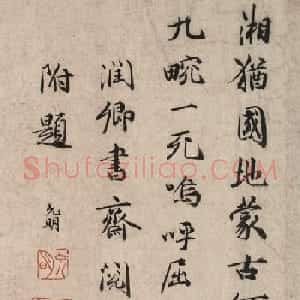 湘猶國地蒙古
九畹一死嗚呼屈
潤卿書齋閱
附題
元明
Shufaziliao.com